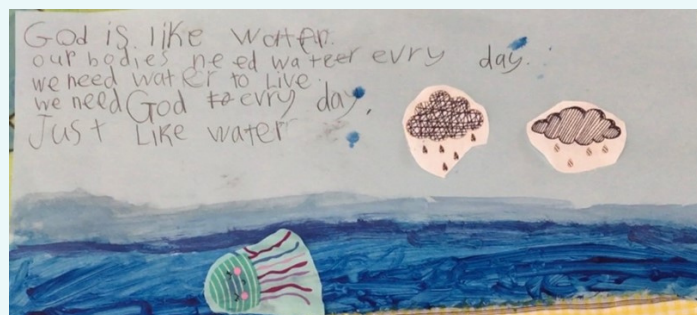 God is like water.
our bodies need wateer evry day.
we need water to live.
we need God to evry day,
Just Like water